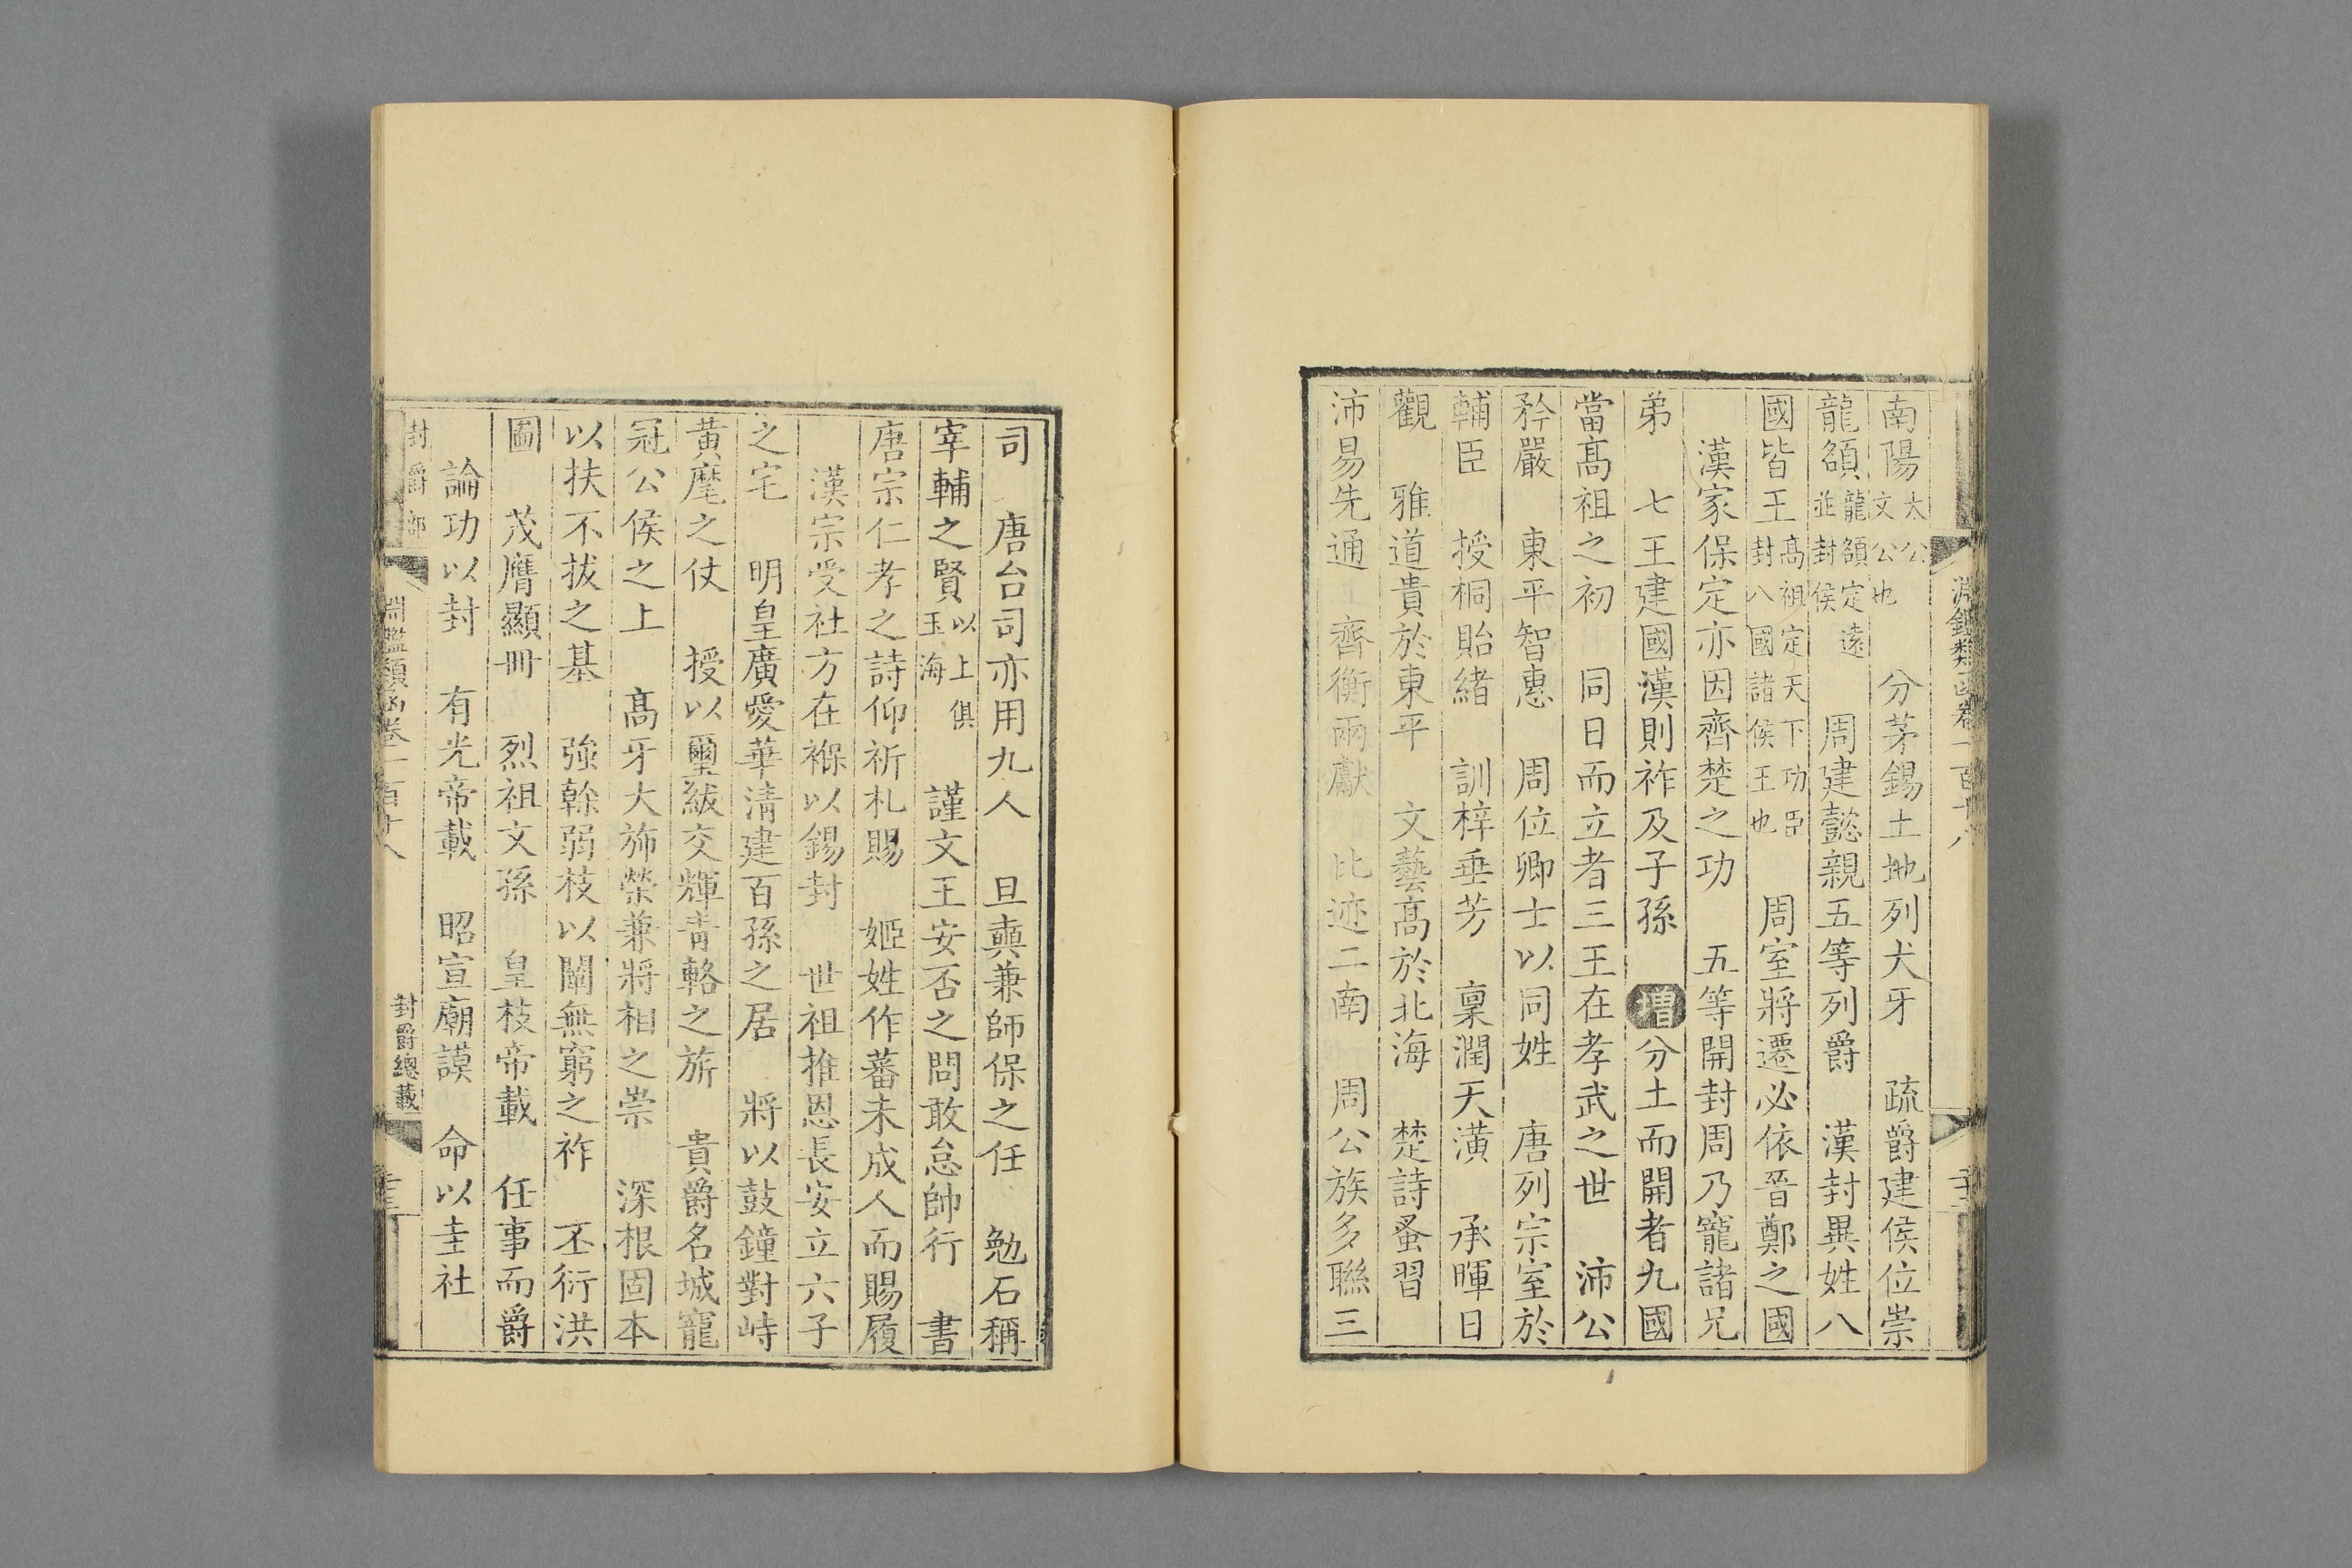 淵鑑類函卷一百十八
南陽太公文公也　分茅錫土地列犬牙　疏爵建侯位崇
龍頟龍頟定遠並封侯　周建懿親五等列爵　漢封異姓八
國皆王高祖定天下功臣封八國諸侯王也　周室將遷必依晉鄭之國
漢家保定亦因齊楚之功　五等開封周乃寵諸兄
弟　七王建國漢則祚及子孫　增分土而開者九國
當髙祖之初　同日而立者三王在孝武之世　沛公
矜嚴　東平智惠　周位卿士以同姓　唐列宗室於
輔臣　授桐貽緒　訓梓垂芳　稟潤天潢　承暉日
觀　雅道貴於東平　文藝髙於北海　楚詩蚤習
沛易先通　齊衡兩獻　比迹二南　周公族多聯三
司　唐台司亦用九人　旦奭兼師保之任　勉石稱
宰輔之賢以上俱玉海　謹文王安否之問敢怠帥行　書
唐宗仁孝之詩仰祈札賜　姬姓作蕃未成人而賜履
漢宗受社方在褓以錫封　世祖推恩長安立六子
之宅　明皇廣愛華清建百孫之居　將以鼓鐘對峙
黃麾之仗　授以璽紱交輝青輅之旂　貴爵名城寵
冠公侯之上　髙牙大斾榮兼將相之崇　深根固本
以扶不拔之基　強榦弱枝以闡無窮之祚　丕衍洪
圖　茂膺顯冊　烈祖文孫　皇枝帝載　任事而爵
論功以封　有光帝載　昭宣廟謨　命以圭社
封爵部　淵鑑類函卷一百十八　封爵總載